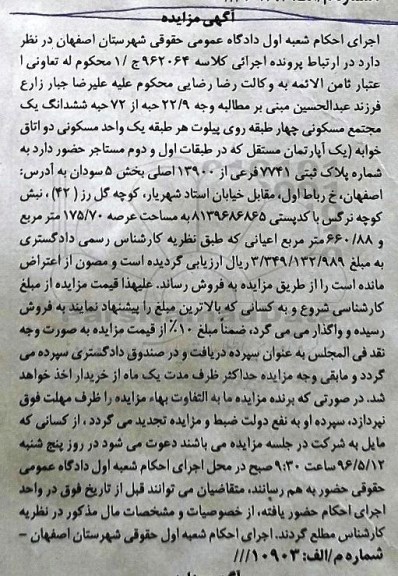 آگهی مزایده
اجرای احکام شعبه اول دادگاه عمومی حقوقی شهرستان اصفهان در نظر
دارد در ارتباط پرونده اجرائی کلاسه ۹۶۲۰۶۴ج /۱ محکوم له تعاونی ا
عتبار ثامن الائمه به وکالت رضا رضایی محکوم علیه علیرضا جبار زارع
فرزند عبدالحسین مبنی بر مطالبه وجه ۲۲/۹ حبه از ۷۲ حبه ششدانگ یک
مجتمع مسکونی چهار طبقه روی پیلوت هر طبقه یک واحد مسکونی دو اتاق
خوابه (یک آپارتمان مستقل که در طبقات اول و دوم مستاجر حضور دارد به
شماره پلاک ثبتی ۷۷۴۱ فرعی از ۱۳۹۰۰ اصلی بخش ۵ سودان به آدرس:
اصفهان، خ رباط اول، مقابل خیابان استاد شهریار، کوچه گل رز ( ۴۲) ، نبش
کوچه نرگس با کدپستی ۸۱۳۹۶۸۶۸۶۵ به مساحت عرصه ۱۷۵/۷۰ متر مربع
و ۶۶۰/۸۸ متر مربع اعیانی که طبق نظریه کارشناس رسمی دادگستری
به مبلغ ۳/۳۴۹/۱۳۲/۹۸۹ ریال ارزیابی گردیده است و مصون از اعتراض
مانده است را از طریق مزایده به فروش رساند. علیهذا قیمت مزایده از مبلغ
کارشناسی شروع و به کسانی که بالاترین مبلغ را پیشنهاد نمایند به فروش
رسیده و واگذار می می گرد، ضمناً مبلغ ۱۰٪ از قیمت مزایده به صورت وجه
نقد فی المجلس به عنوان سپرده دریافت و در صندوق دادگستری سپرده می
گردد و مابقی وجه مزایده حداکثر ظرف مدت یک ماه از خریدار اخذ خواهد
شد. در صورتی که برنده مزایده ما به التفاوت بهاء مزایده را ظرف مهلت فوق
نپردازد، سپرده او به نفع دولت ضبط و مزایده تجدید می گردد ، از کسانی که
مایل به شرکت در جلسه مزایده می باشند دعوت می شود در روز پنج شنبه
۹۶/۵/۱۲ ساعت ۹:۳۰ صبح در محل اجرای احکام شعبه اول دادگاه عمومی
حقوقی حضور به هم رسانند، متقاضیان می توانند قبل از تاریخ فوق در واحد
اجرای احکام حضور یافته، از خصوصیات و مشخصات مال مذکور در نظریه
کارشناس مطلع گردند. اجرای احکام شعبه اول حقوقی شهرستان اصفهان -
شماره م/الف: ۱۰۹۰۳///